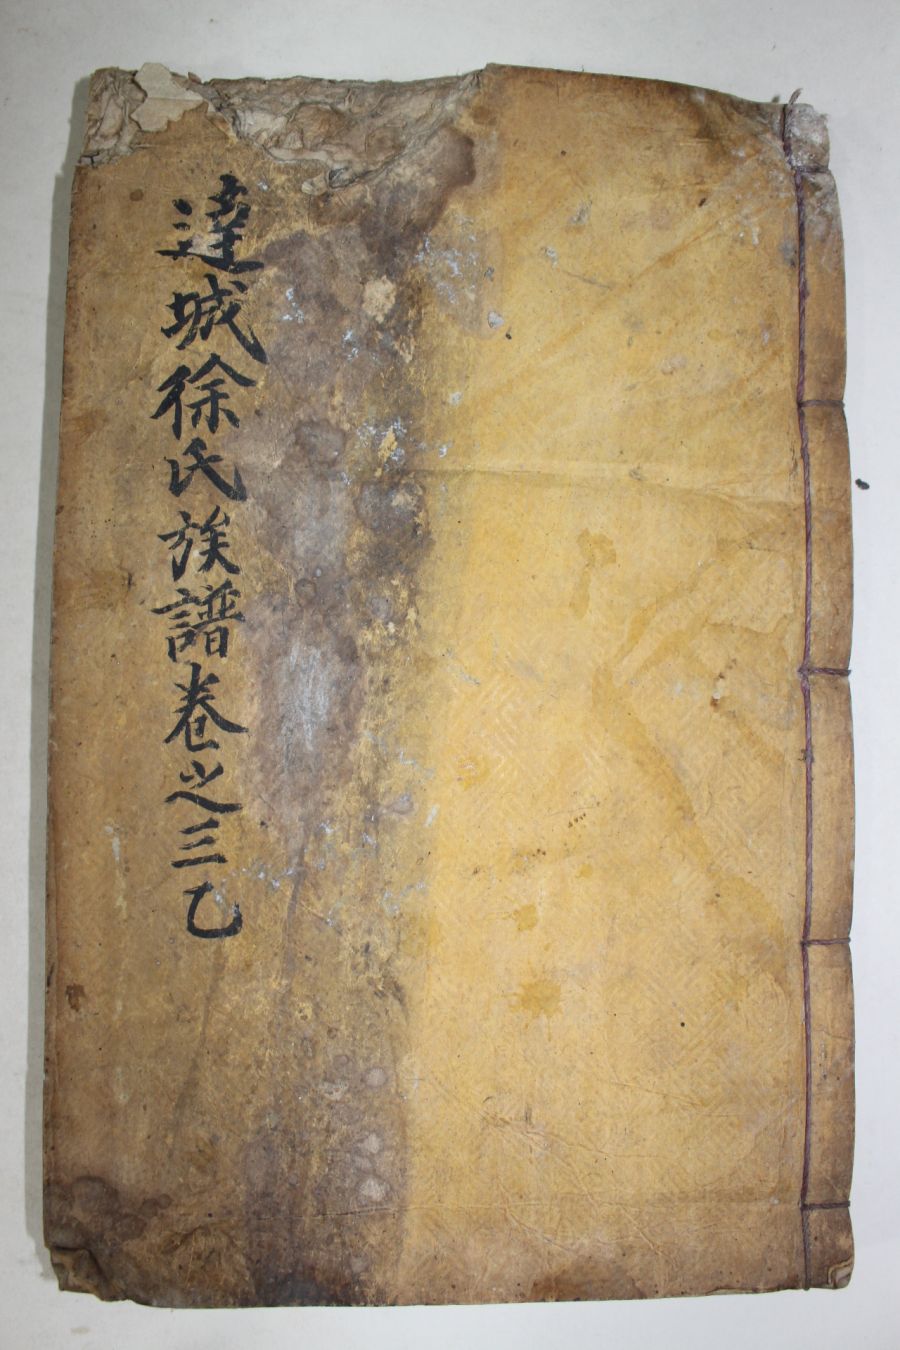 達城徐氏族譜卷之三乙